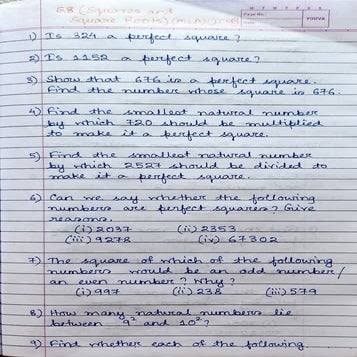 G.8 (Squares and
Square Roots) (M.L.A) (ICSE)
Page No.
Date
YOUVA
1) Is 324 a perfect square?
2) Is 1152 a perfect square?
3) Show that 676 is a perfect square.
Find the number whose square is 676.
4) Find the smallest natural number
by which 720 should be multiplied
to make it a perfect square.
5) Find the smallest natural number
by which 2527 should be divided to
make it a perfect square.
6) Can we say whether the following
numbers are perfect squares? Give
reasons.
(i) 2037 (ii) 2353
(iii) 9278 (iv) 67302
7) The square of which of the following
numbers would be an odd number/
an even number? Why?
(i) 997 (ii) 238 (iii) 579
8) How many natural numbers lie
between 9² and 10²?
9) Find whether each of the following